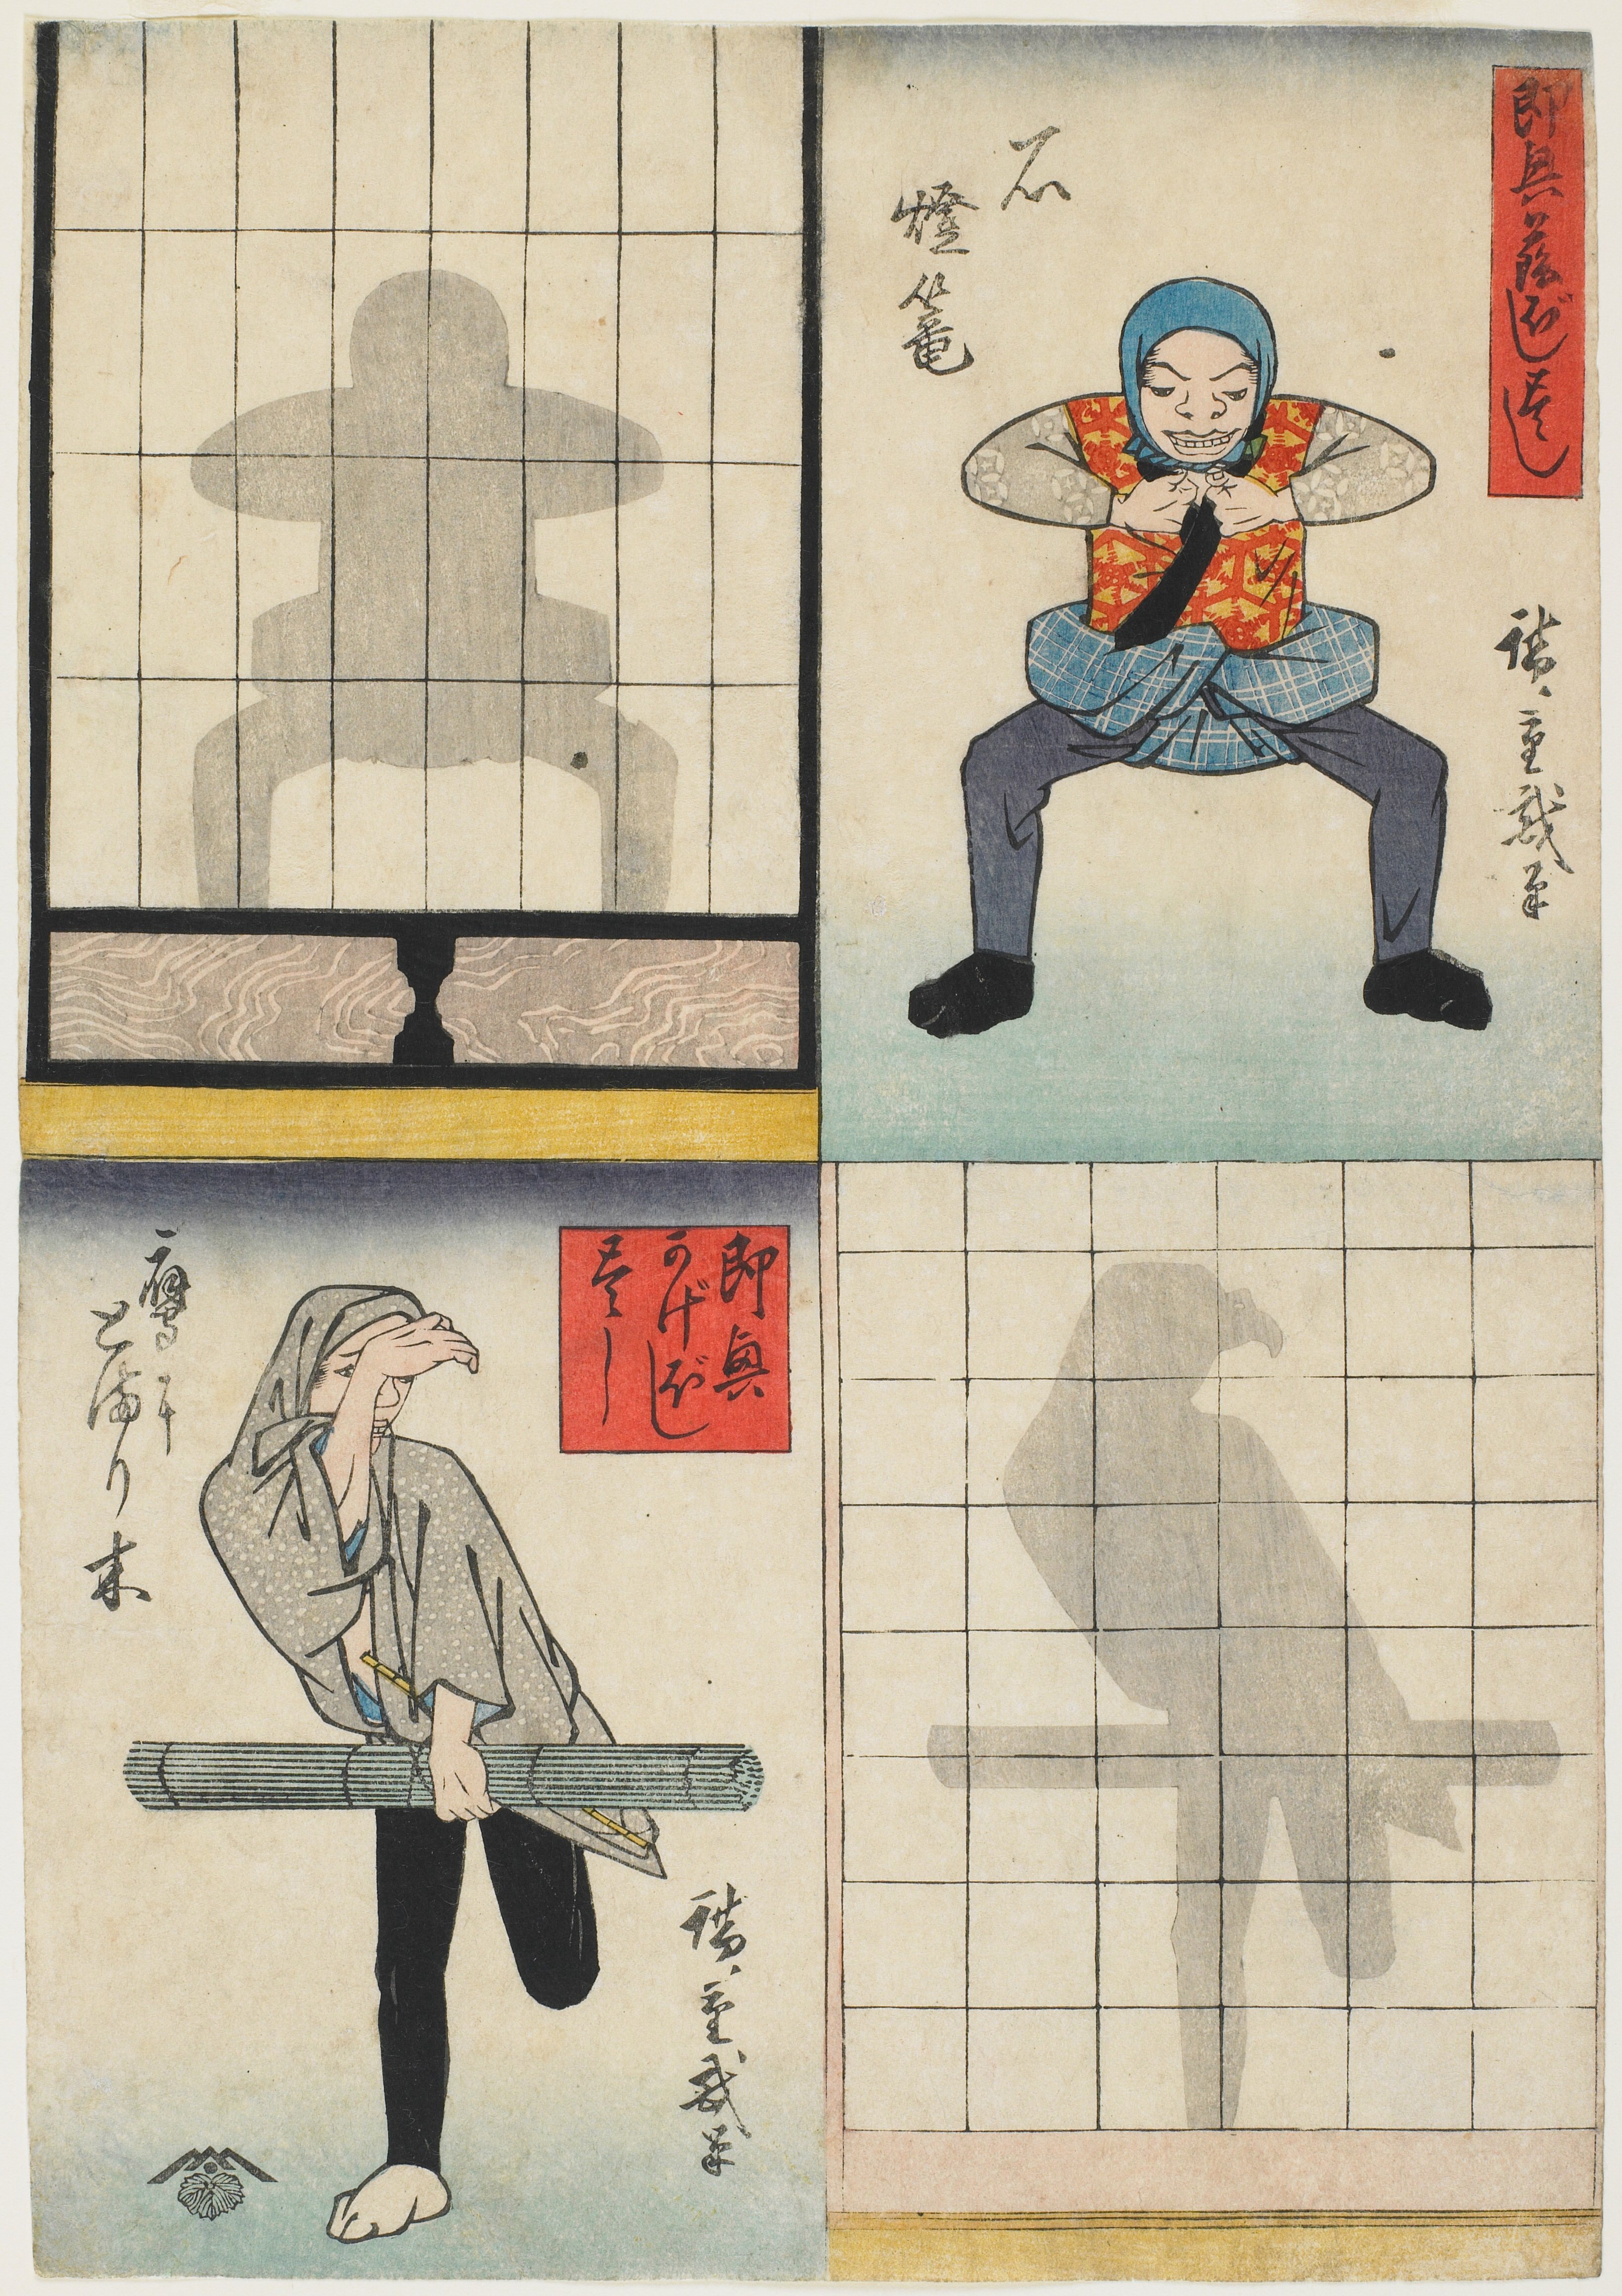 即興蔭ぼし尽し
石
燈籠
廣重戯筆
即興
かげぼし
尽し
鷹に
とまり木
廣重戯筆